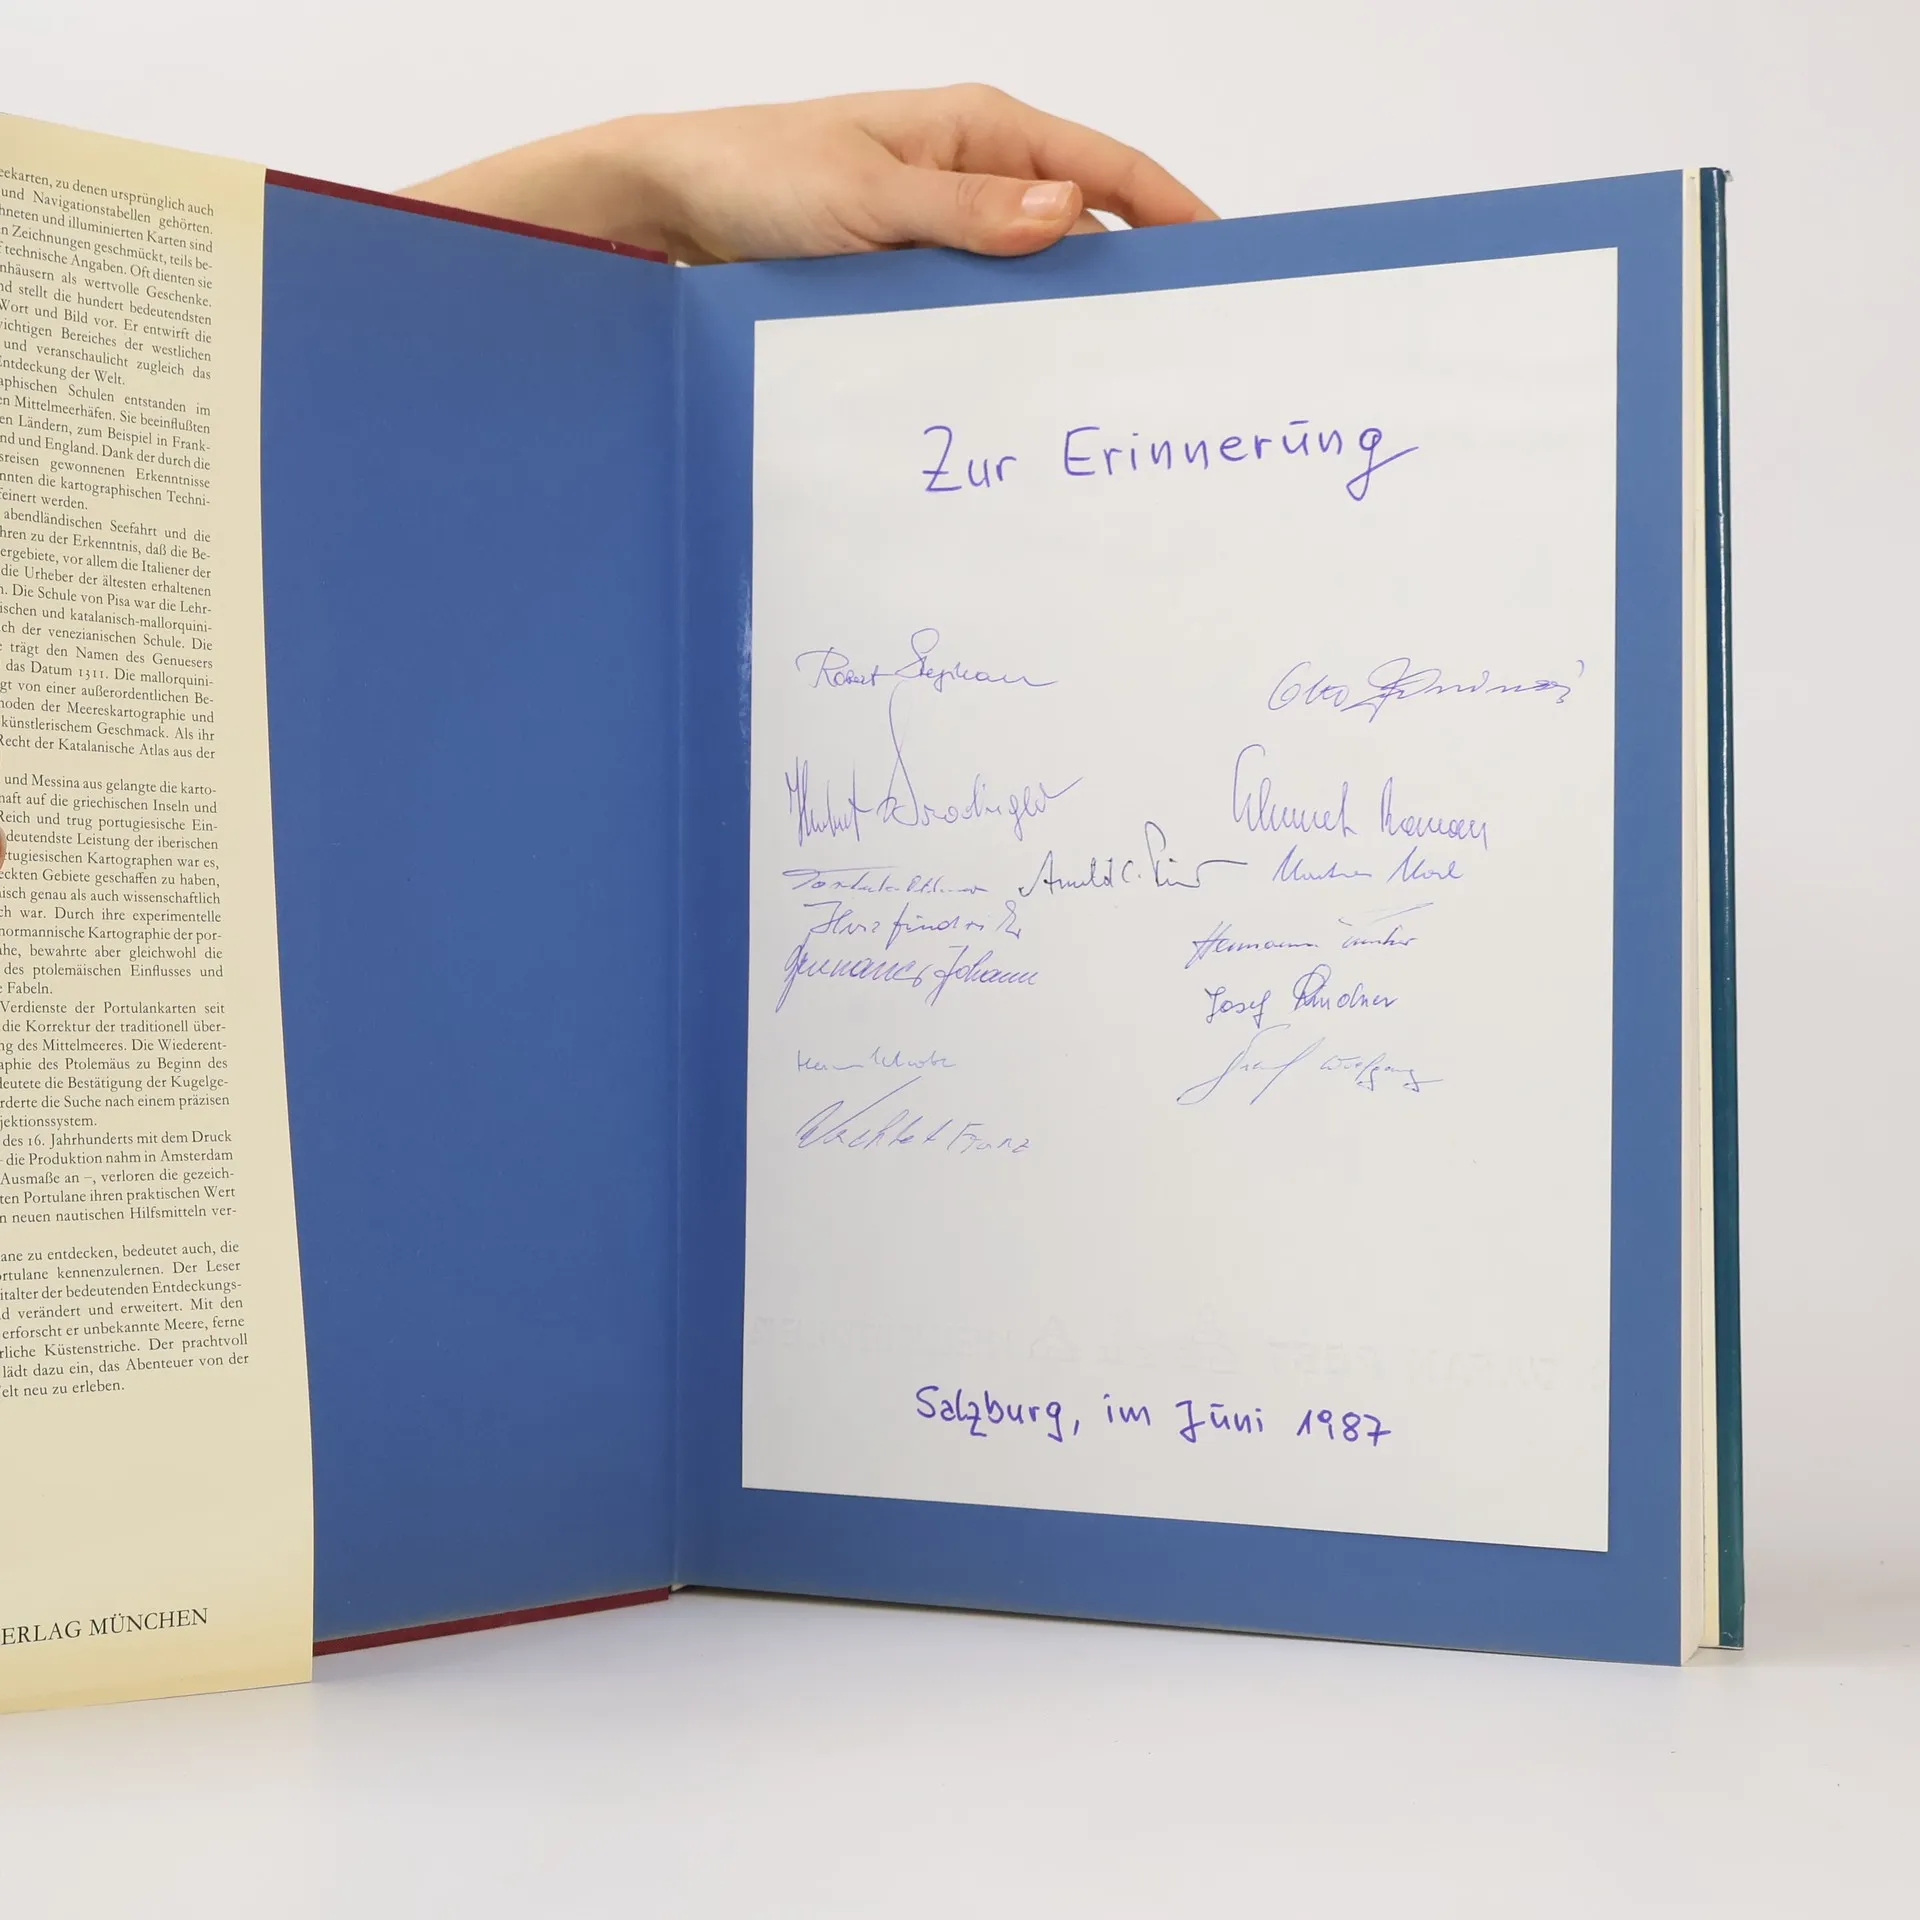 eekarten, zu denen ursprünglich auch
und Navigationstabellen gehörten.
hneten und illuminierten Karten sind
n Zeichnungen geschmückt, teils be-
technische Angaben. Oft dienten sie
nhäusern als wertvolle Geschenke.
nd stellt die hundert bedeutendsten
Wort und Bild vor. Er entwirft die
vichtigen Bereiches der westlichen
und veranschaulicht zugleich das
Entdeckung der Welt.
aphischen Schulen entstanden im
en Mittelmeerhäfen. Sie beeinflußten
en Ländern, zum Beispiel in Frank-
nd und England. Dank der durch die
sreisen gewonnenen Erkenntnisse
nnten die kartographischen Techni-
feinert werden.
abendländischen Seefahrt und die
hren zu der Erkenntnis, daß die Be-
ergebiete, vor allem die Italiener der
die Urheber der ältesten erhaltenen
n. Die Schule von Pisa war die Lehr-
ischen und katalanisch-mallorquini-
ch der venezianischen Schule. Die
e trägt den Namen des Genuesers
das Datum 1311. Die mallorquini-
gt von einer außerordentlichen Be-
hoden der Meereskartographie und
künstlerischem Geschmack. Als ihr
Recht der Katalanische Atlas aus der
und Messina aus gelangte die karto-
haft auf die griechischen Inseln und
Reich und trug portugiesische Ein-
deutendste Leistung der iberischen
rtugiesischen Kartographen war es,
eckten Gebiete geschaffen zu haben,
nisch genau als auch wissenschaftlich
ch war. Durch ihre experimentelle
normannische Kartographie der por-
ahe, bewahrte aber gleichwohl die
des ptolemäischen Einflusses und
e Fabeln.
Verdienste der Portulankarten seit
die Korrektur der traditionell über-
ng des Mittelmeeres. Die Wiederent-
aphie des Ptolemäus zu Beginn des
deutete die Bestätigung der Kugelge-
rderte die Suche nach einem präzisen
jektionssystem.
des 16. Jahrhunderts mit dem Druck
– die Produktion nahm in Amsterdam
Ausmaße an –, verloren die gezeich-
ten Portulane ihren praktischen Wert
n neuen nautischen Hilfsmitteln ver-
ane zu entdecken, bedeutet auch, die
ortulane kennenzulernen. Der Leser
italter der bedeutenden Entdeckungs-
d verändert und erweitert. Mit den
erforscht er unbekannte Meere, ferne
rliche Küstenstriche. Der prachtvoll
lädt dazu ein, das Abenteuer von der
elt neu zu erleben.
ERLAG MÜNCHEN
Zur Erinnerung
Robert Otto
Herbert
Arnold C.
Johann Hermann
Josef Lindner
Graf Wolfgang
Wachter Franz
Salzburg, im Juni 1987